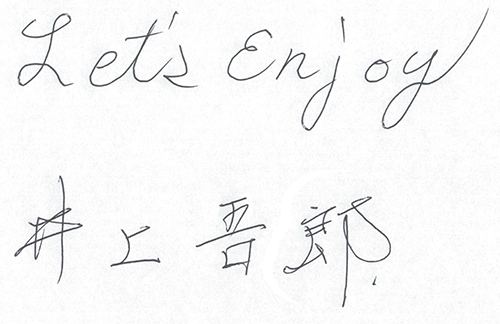 Let's Enjoy
井上吾郎